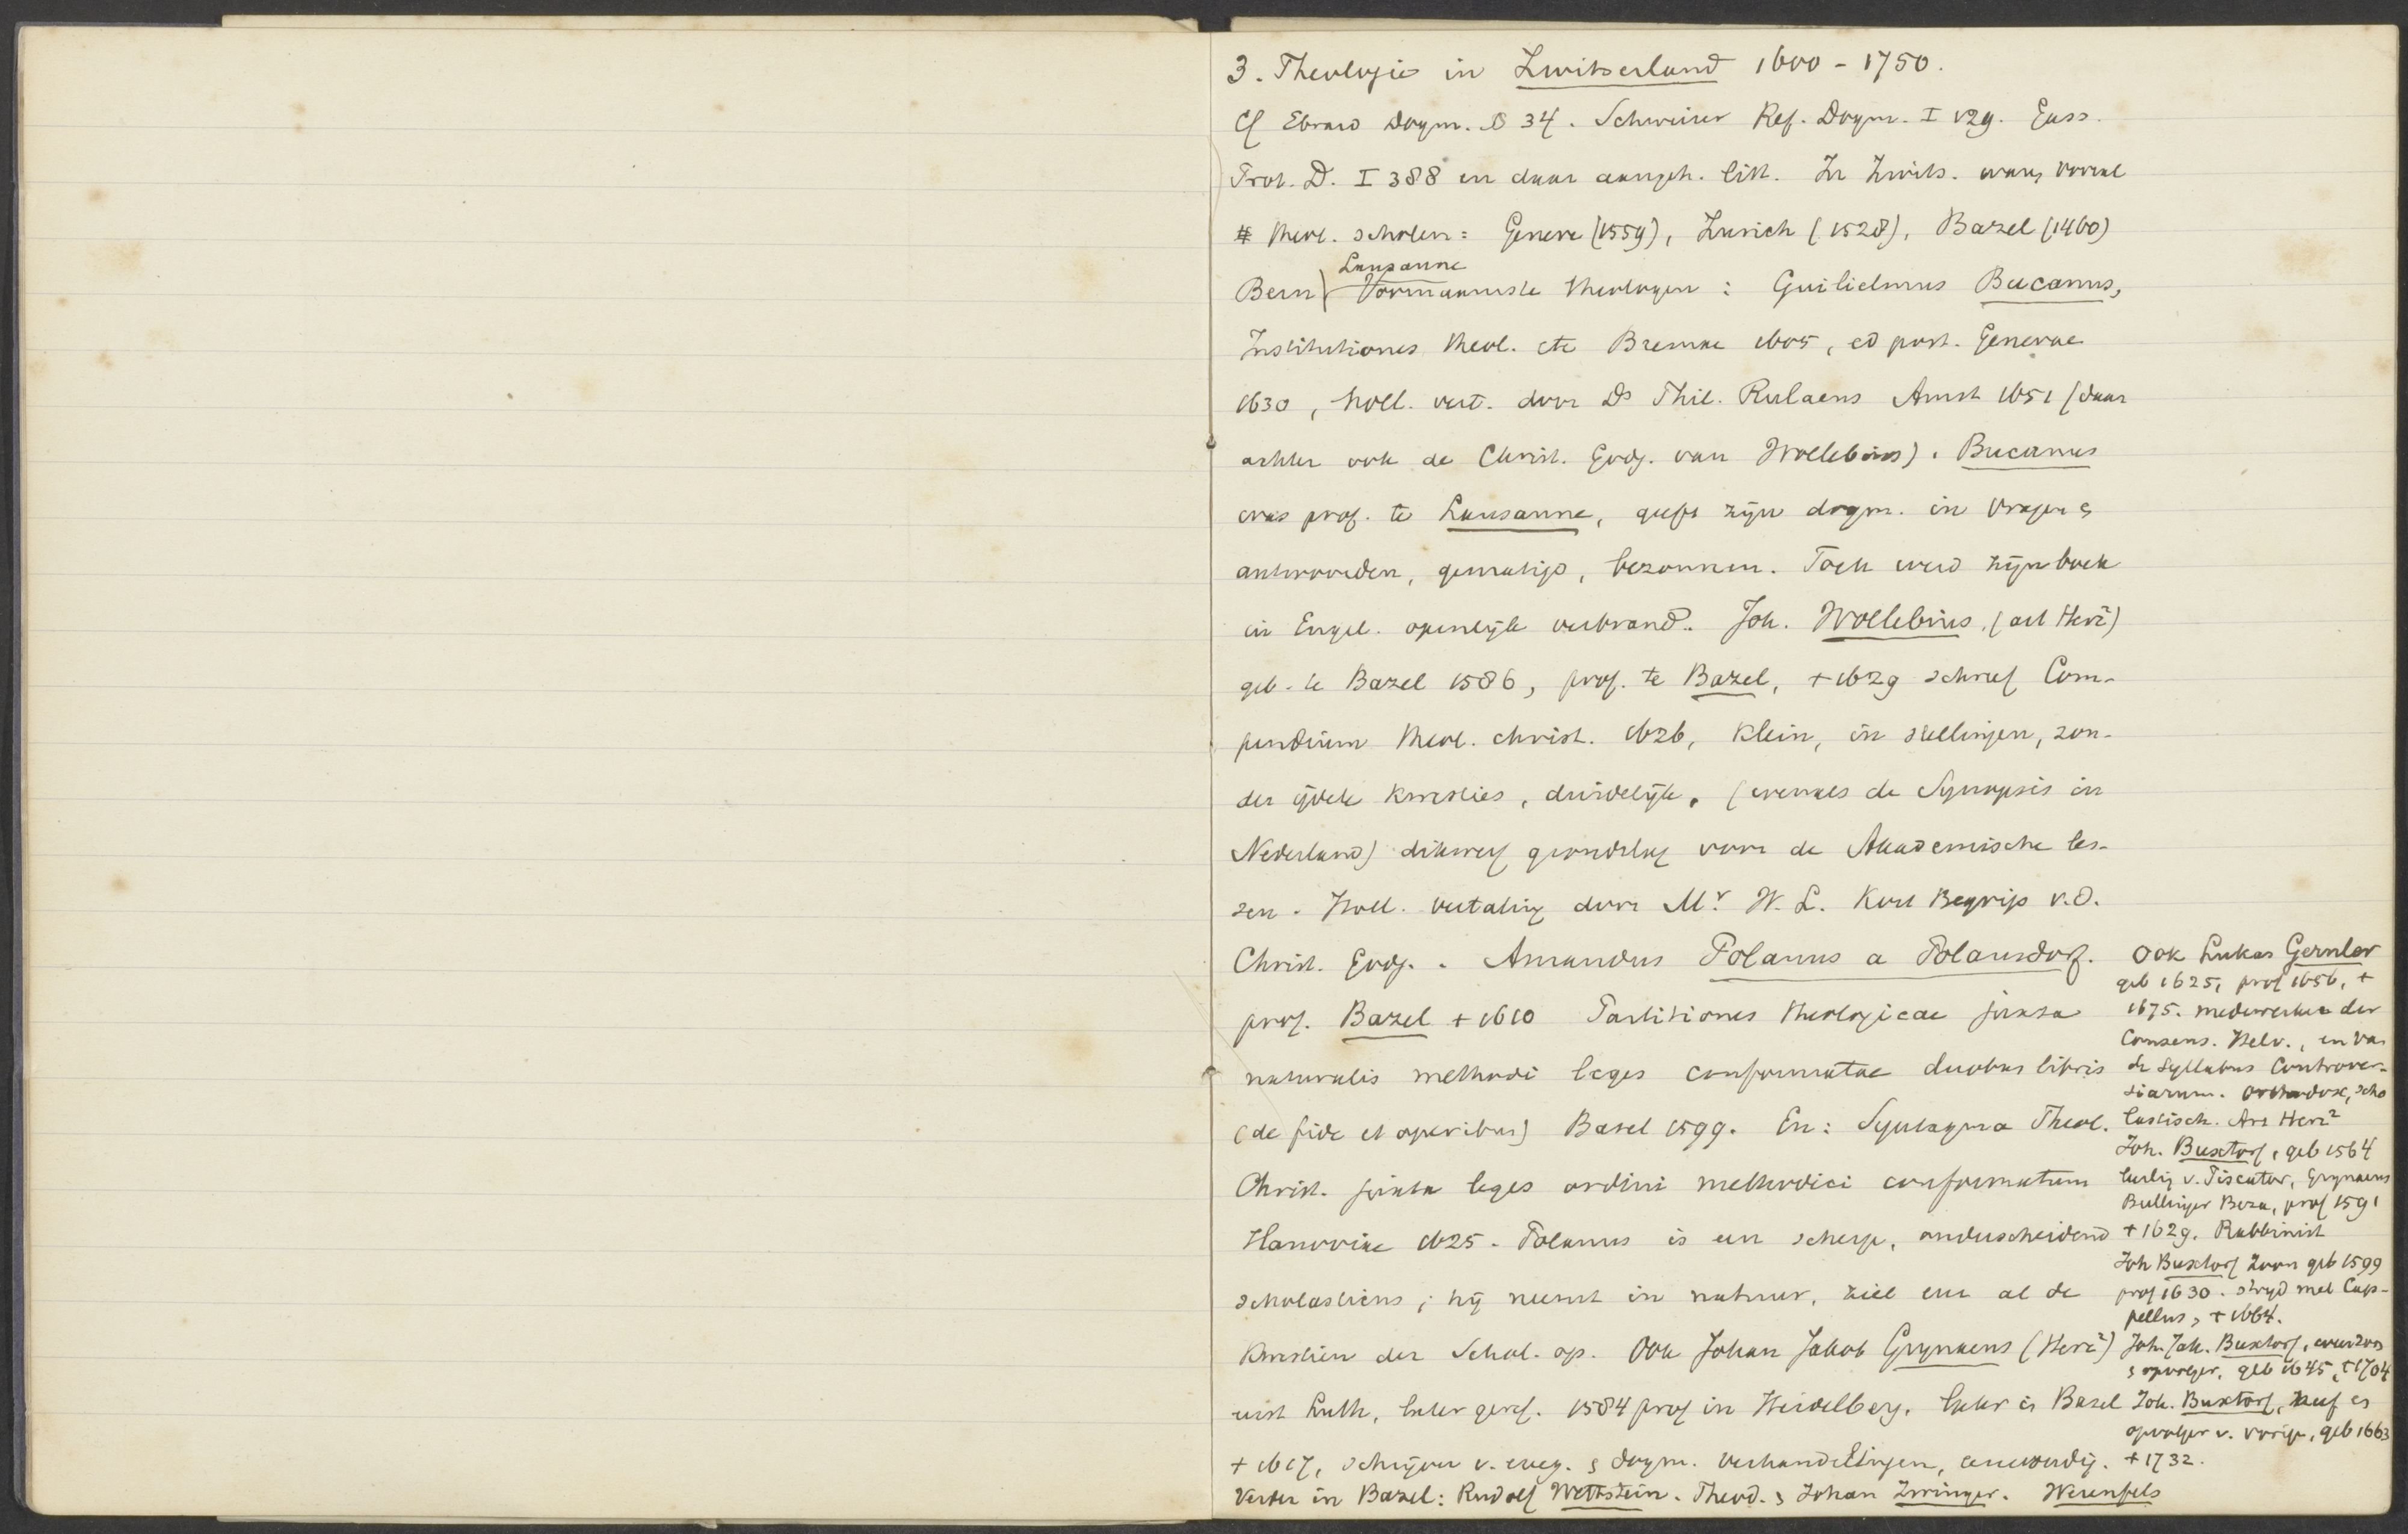 3. Theologie in Zwitserland 1600 - 1750.
Cf Ebrard Dogm. § 34. Schweizer Ref. Dogm. I 129. Gass.
Prot. D. I 388 en daar aangeh. litt. In Zwits. waren vooral
# theol. scholen: Geneve (1559), Zurich (1528), Bazel (1460)
Lausanne
Bern) Voornaamste theologen: Guilielmus Bucanus,
Institutiones theol. etc Bremae 1605, ed post. Genevae
1630, holl. vert. door Ds Phil. Rulaens Amst 1651 (daar
achter ook de Christ. Godg. van Wollebius). Bucanus
was prof. te Lausanne, geeft zijn dogm. in vragen &
antwoorden, gematigd, bezonnen. Toch werd zijn boek
in Engel. openlijk verbrand. Joh. Wollebius, (art Herz²)
geb. te Bazel 1586, prof. te Bazel, +1629 schreef Com-
pendium theol. christ. 1626, klein, in stellingen, zon-
der ijdele kwesties, duidelijk, (evenals de Synopsis in
Nederland) dikwerf grondslag voor de Akademische les-
sen. Holl. vertaling door Mr. W. L. Kort Begrip v.d.
Christ. Godg. . Amandus Polanus a Polansdorf.
prof. Bazel + 1610 Partitiones theologicae juxta
naturalis methodi leges conformatae duobus libris
(de fide et operibus) Basel 1599. En: Syntagma Theol.
Christ. juxta leges ordini methodici conformatum
Hanoviae 1625. Polanus is een scherp, onderscheidend
scholasticus; hij neemt in natuur, ziel enz al de
kwestien der Schol. op. Ook Johan Jakob Grynaeus (Herz²)
eerst Luth, later geref. 1584 prof in Heidelberg, later in Basel
+ 1617, schrijver v. exeg. & dogm. verhandelingen, eenvoudig.
Verder in Bazel: Rudolf Wettstein. Theod. & Johan Zwinger. Werenfels
Ook Lukas Gernler
geb 1625, prof 1656, +
1675. medewerker der
Consens. Helv., en van
de Syllabus Controver-
siarum. Orthodox, scho
lastisch. Art Herz²
Joh. Buxtorf, geb 1564
leerling v. Piscator, Grynaeus
Bullinger Beza, prof 1591
+ 1629. Rabbinist
Joh Buxtorf Zoon geb 1599
prof 1630. strijd met Cap-
pellus, + 1664.
Joh. Jak. Buxtorf, weer zoon
& opvolger, geb 1645, +1704
Joh. Buxtorf, neef en
opvolger v. vorige, geb 1663
+ 1732.